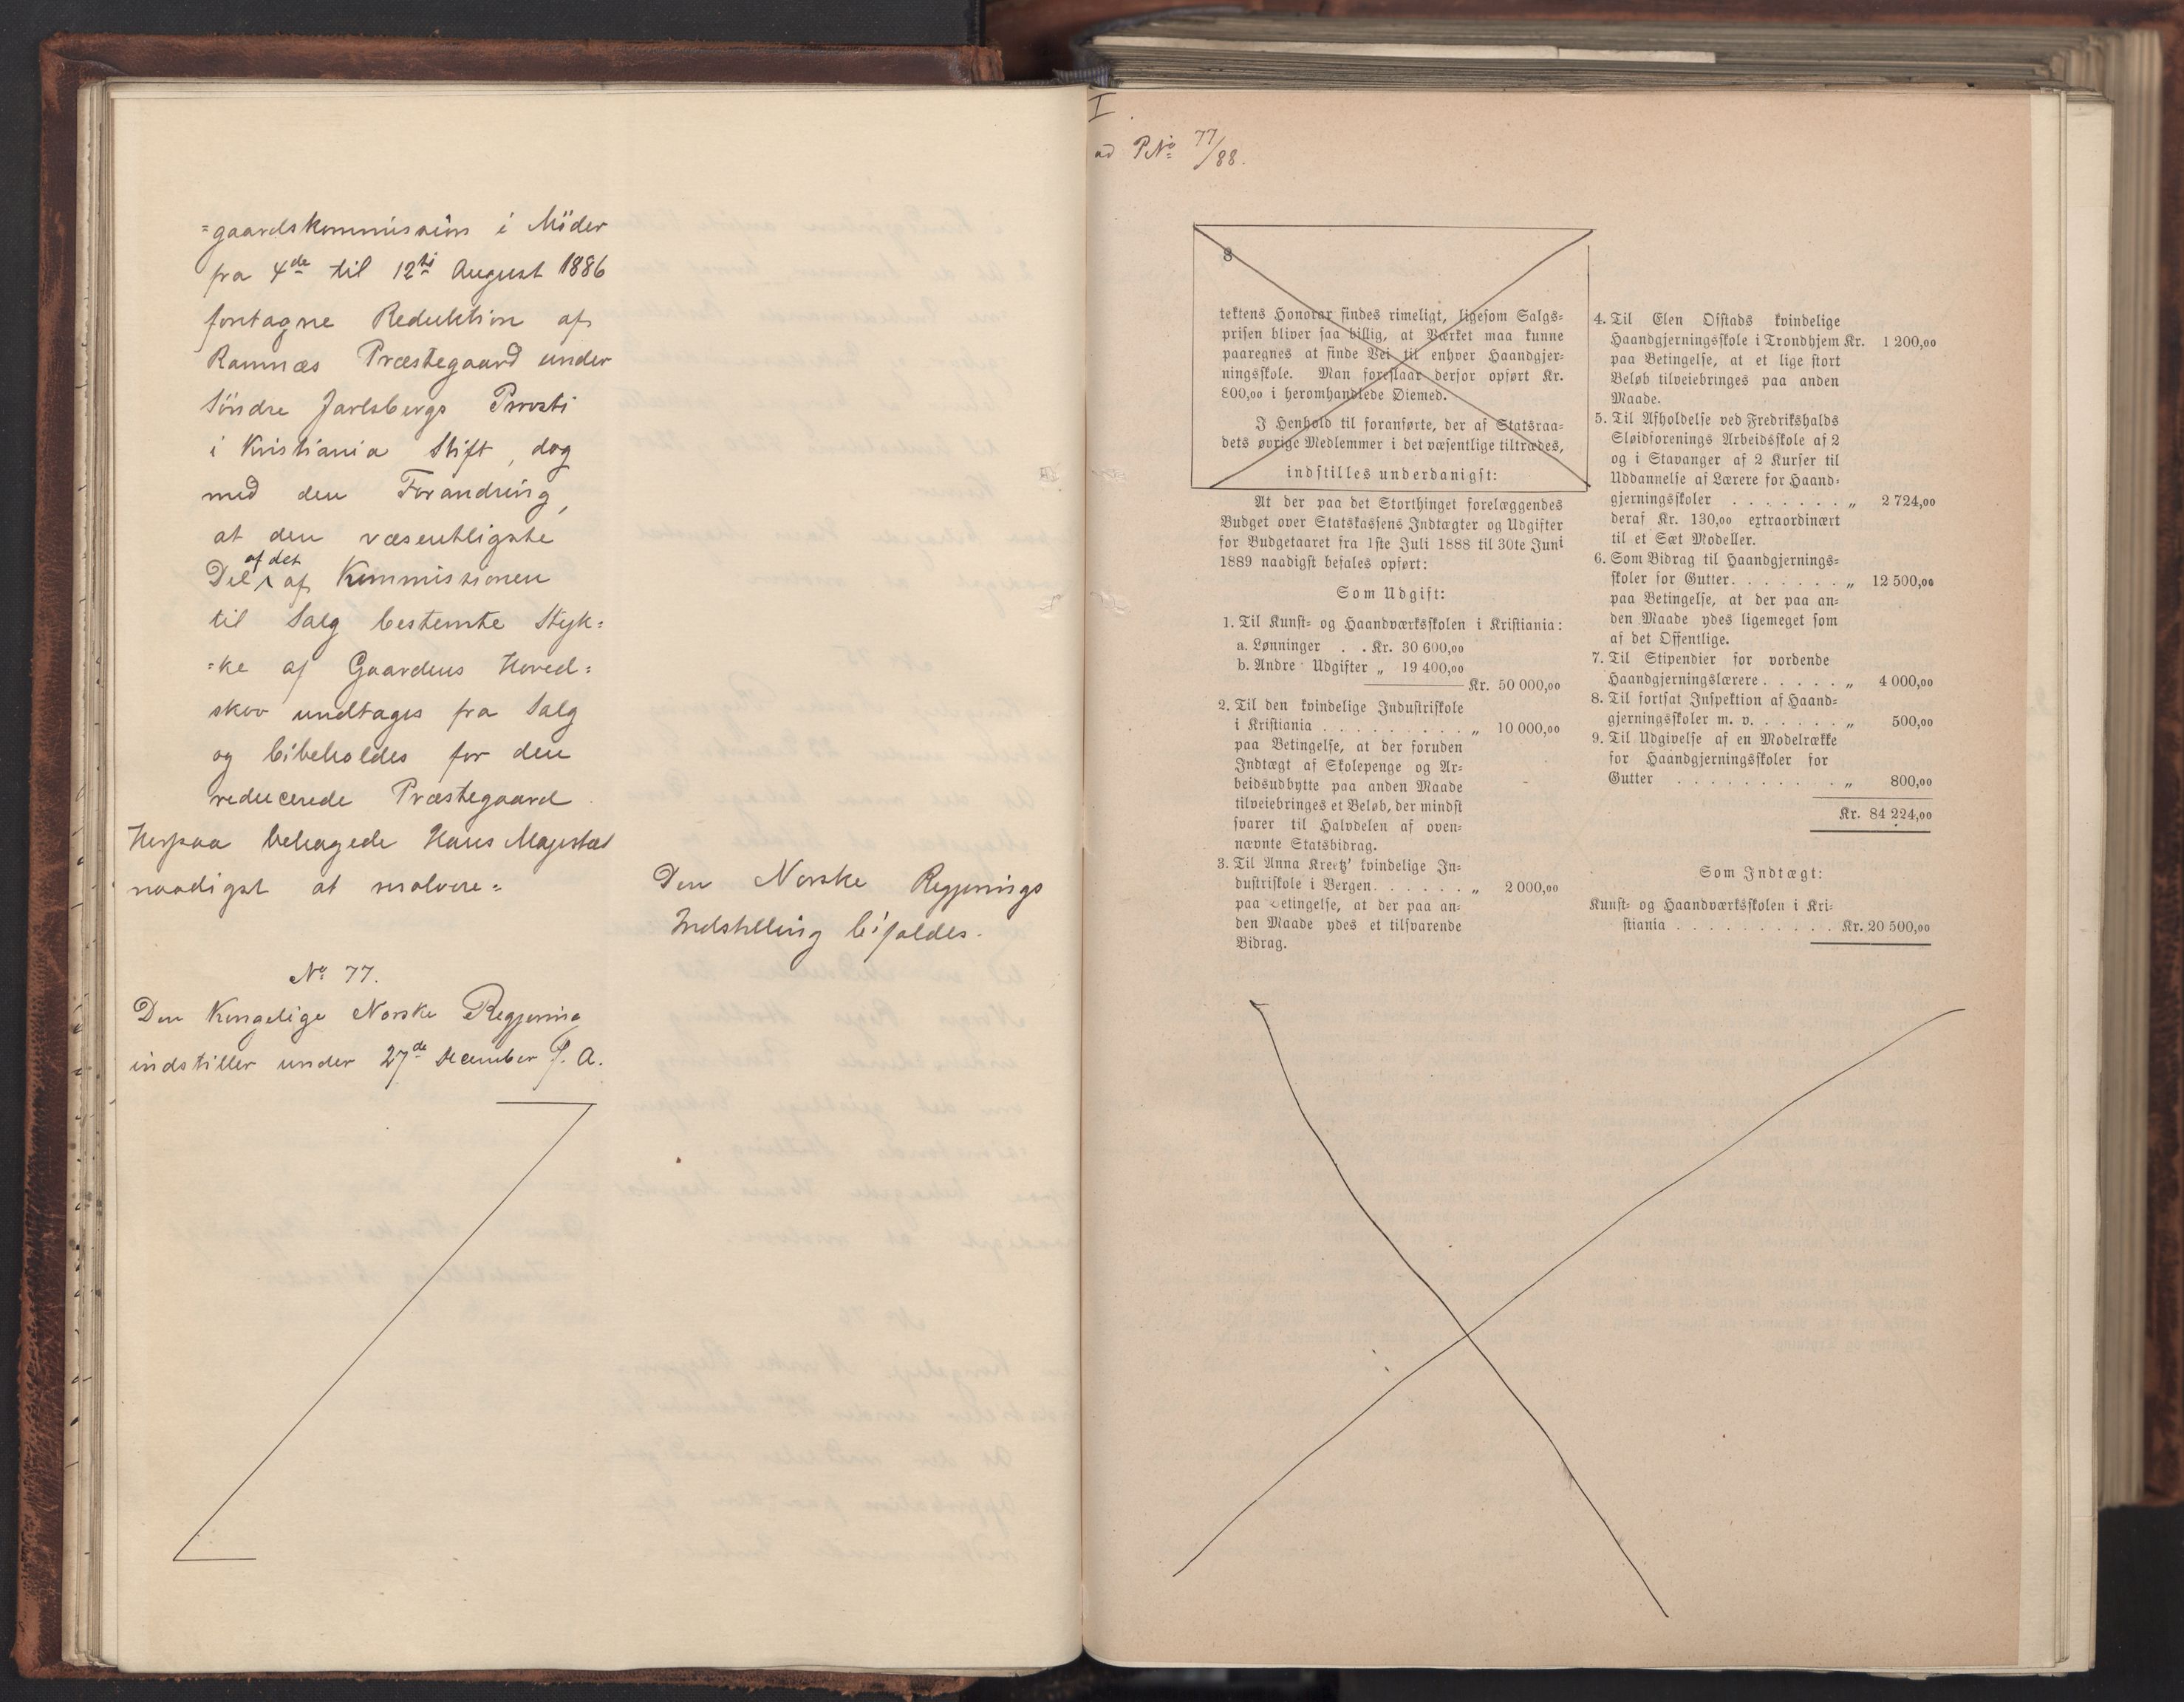 =gaardskommission i Möder
fra 4de til 12te August 1886
foretagne Reduktion af
Ramnæs Præstegaard under
Söndre Jarlsbergs Provsti
i Kristiania Stift, dog
med den Forandring,
at den væsentligste
Del af det af Kommissionen
til Salg bestemte Styk=
=ke af Gaardens Hoved=
skov undtages fra Salg
og bibeholdes for den
reducerede Præstegaard.
Herpaa behagede Hans Majestæt
naadigst at resolvere=
Den Norske Regjerings
Indstilling bifaldes.
No 77.
Den Kongelige Norske Regjering
indstiller under 27de December f. A.
I.
ad PNo 77/88.
8
tektens Honorar findes rimeligt, ligesom Salgs=
prisen bliver saa billig, at Værket maa kunne
paaregnes at finde Vei til enhver Haandgjer=
ningsskole. Man foreslaar derfor opført Kr.
800,00 i heromhandlede Øiemed.
I Henhold til foranførte, der af Statsraa=
dets øvrige Medlemmer i det væsentlige tiltrædes,
indstilles underdanigst:
At der paa det Storthinget forelæggendes
Budget over Statskassens Indtægter og Udgifter
for Budgetaaret fra 1ste Juli 1888 til 30te Juni
1889 naadigst befales opført:
Som Udgift:
1. Til Kunst= og Haandværksskolen i Kristiania:
a. Lønninger . . Kr. 30 600,00
b. Andre Udgifter „ 19 400,00
Kr. 50 000,00
2. Til den kvindelige Industriskole
i Kristiania . . . . . . . . . „ 10 000,00
paa Betingelse, at der foruden
Indtægt af Skolepenge og Ar=
beidsudbytte paa anden Maade
tilveiebringes et Beløb, der mindst
svarer til Halvdelen af oven=
nævnte Statsbidrag.
3. Til Anna Kreetz' kvindelige In=
dustriskole i Bergen. . . . . . „ 2 000,00
paa Betingelse, at der paa an=
den Maade ydes et tilsvarende
Bidrag.
4. Til Elen Offstads kvindelige
Haandgjerningsskole i Trondhjem Kr. 1 200,00
paa Betingelse, at et lige stort
Beløb tilveiebringes paa anden
Maade.
5. Til Afholdelse ved Fredrikshalds
Sløidforenings Arbeidsskole af 2
og i Stavanger af 2 Kurser til
Uddannelse af Lærere for Haand=
gjerningsskoler . . . . . . . „ 2 724,00
deraf Kr. 130,00 extraordinært
til et Sæt Modeller.
6. Som Bidrag til Haandgjernings=
skoler for Gutter. . . . . . . „ 12 500,00
paa Betingelse, at der paa an=
den Maade ydes ligemeget som
af det Offentlige.
7. Til Stipendier for vordende
Haandgjerningslærere . . . . . „ 4 000,00
8. Til fortsat Inspektion af Haand=
gjerningsskoler m. v. . . . . . „ 500,00
9. Til Udgivelse af en Modelrække
for Haandgjerningsskoler for
Gutter . . . . . . . . . . „ 800,00
Kr. 84 224,00
Som Indtægt:
Kunst= og Haandværksskolen i Kri=
stiania . . . . . . . . . . Kr. 20 500,00